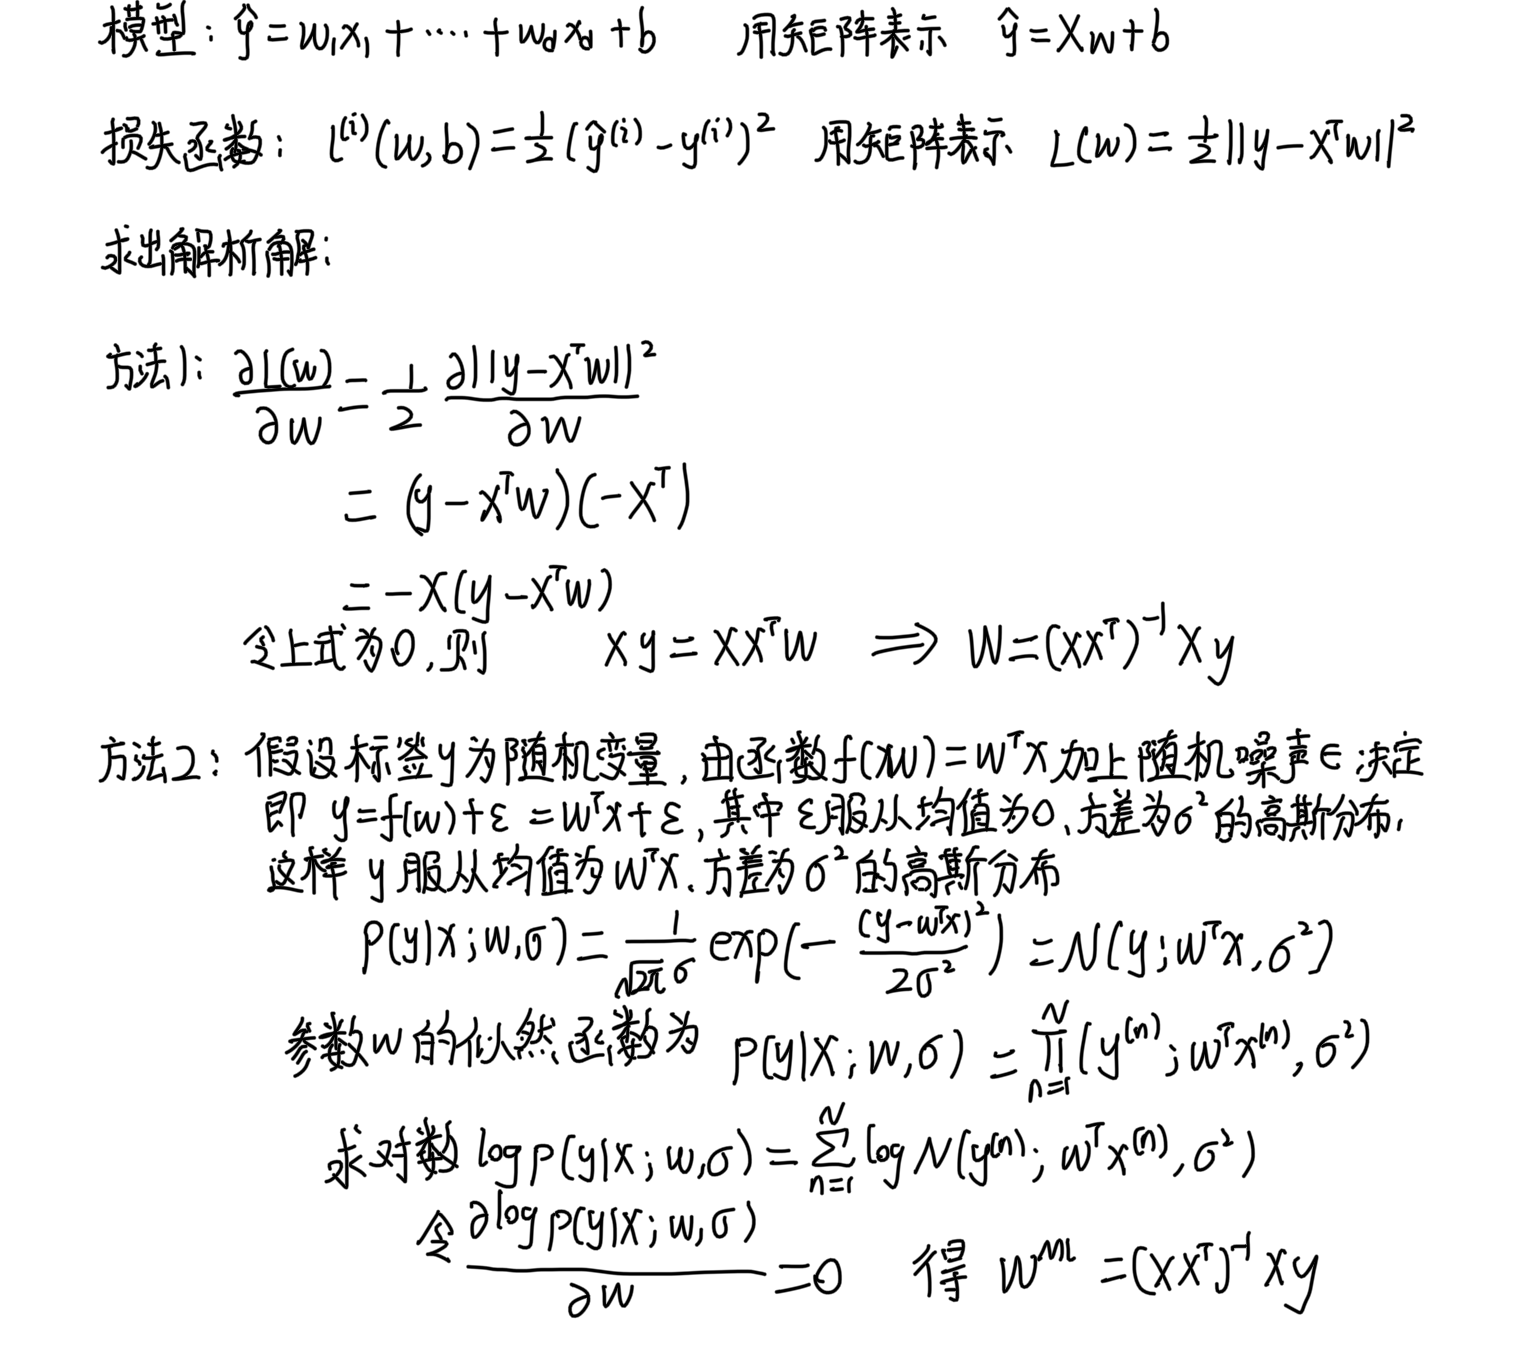 模型：ŷ = w₁x₁ + ···· + w_d x_d + b 用矩阵表示 ŷ = Xw + b
损失函数：l⁽ⁱ⁾(w, b) = ½(ŷ⁽ⁱ⁾ - y⁽ⁱ⁾)² 用矩阵表示 L(w) = ½||y - Xᵀw||²
求出解析解：
方法1：∂L(w)/∂w = 1/2 ∂||y - Xᵀw||²/∂w
= (y - Xᵀw)(-Xᵀ)
= -X(y - Xᵀw)
令上式为0,则 Xy = XXᵀw ⟹ W = (XXᵀ)⁻¹Xy
方法2：假设标签y为随机变量,由函数f(xw) = Wᵀx加上随机噪声∈决定
即 y = f(w) + ε = Wᵀx + ε,其中ε服从均值为0、方差为σ²的高斯分布,
这样 y 服从均值为WᵀX、方差为σ²的高斯分布
P(y|x; w, σ) = 1/(√2π σ) exp(- (y - wᵀx)²/2σ²) = N(y; wᵀx, σ²)
参数w的似然函数为 P(y|X; w, σ) = ∏ₙ₌₁ᴺ (y⁽ⁿ⁾; wᵀx⁽ⁿ⁾, σ²)
求对数 log P(y|x; w, σ) = ∑ₙ₌₁ᴺ log N(y⁽ⁿ⁾; wᵀx⁽ⁿ⁾, σ²)
令 ∂log P(y|X; w, σ)/∂w = 0 得 Wᴹᴸ = (XXᵀ)⁻¹Xy